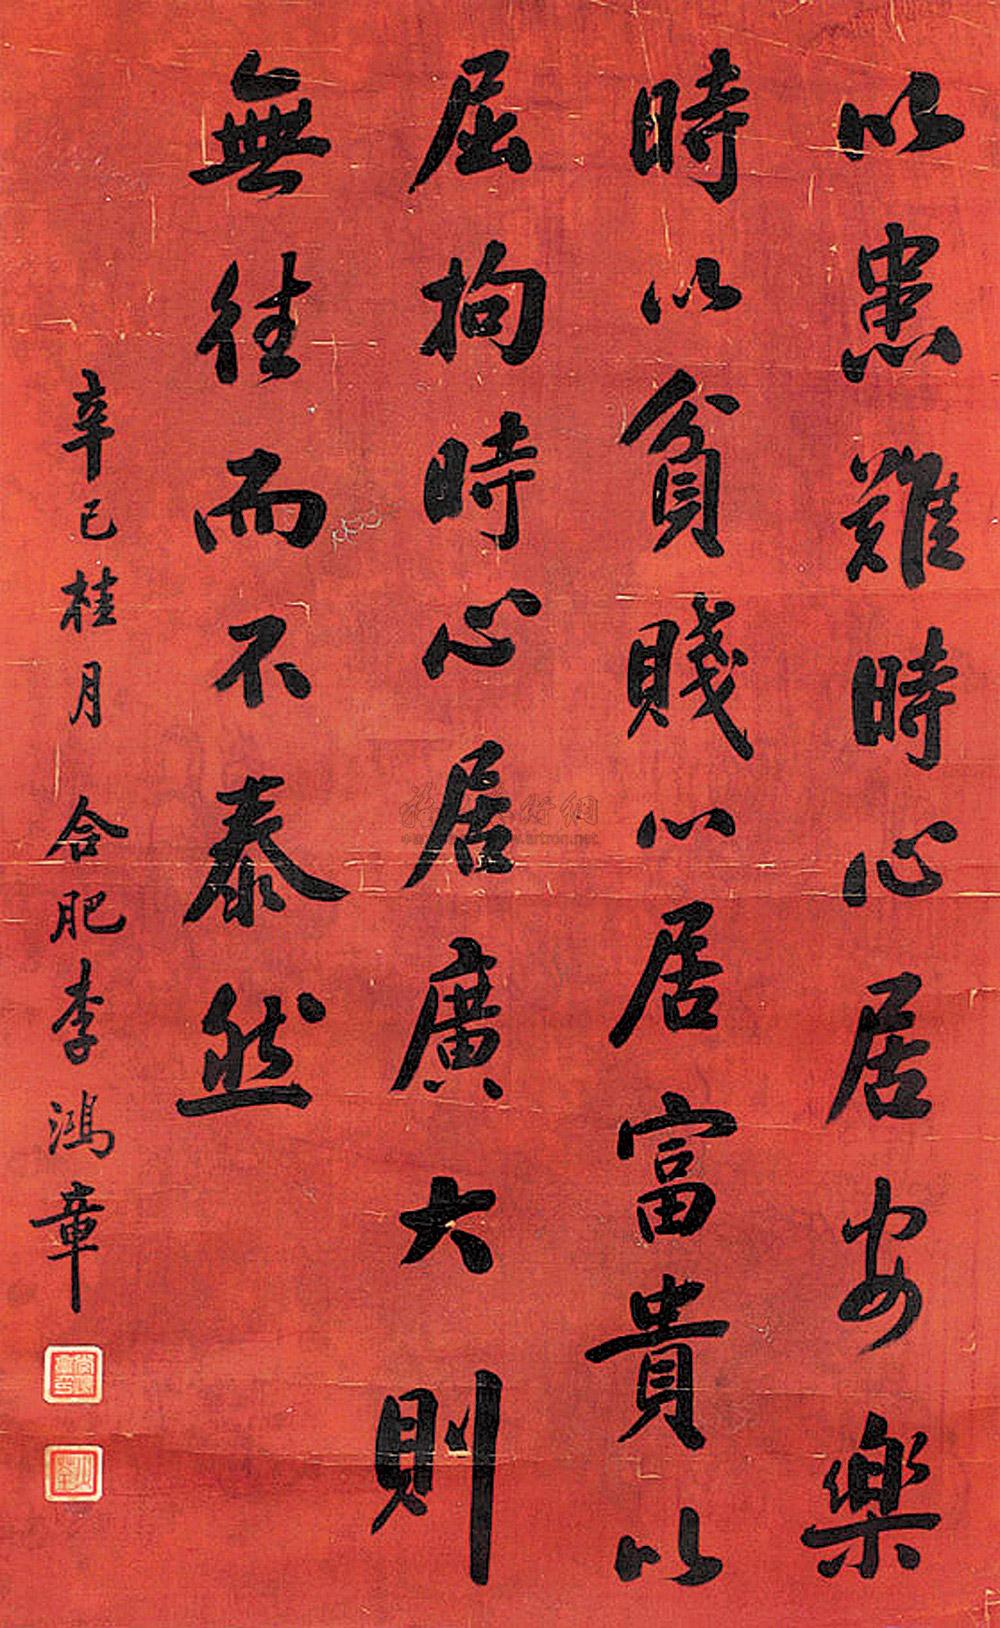 以患難時心居安樂
時以貧賤心居富貴以
屈拘時心居廣大則
無往而不泰然
辛巳桂月 合肥李鴻章